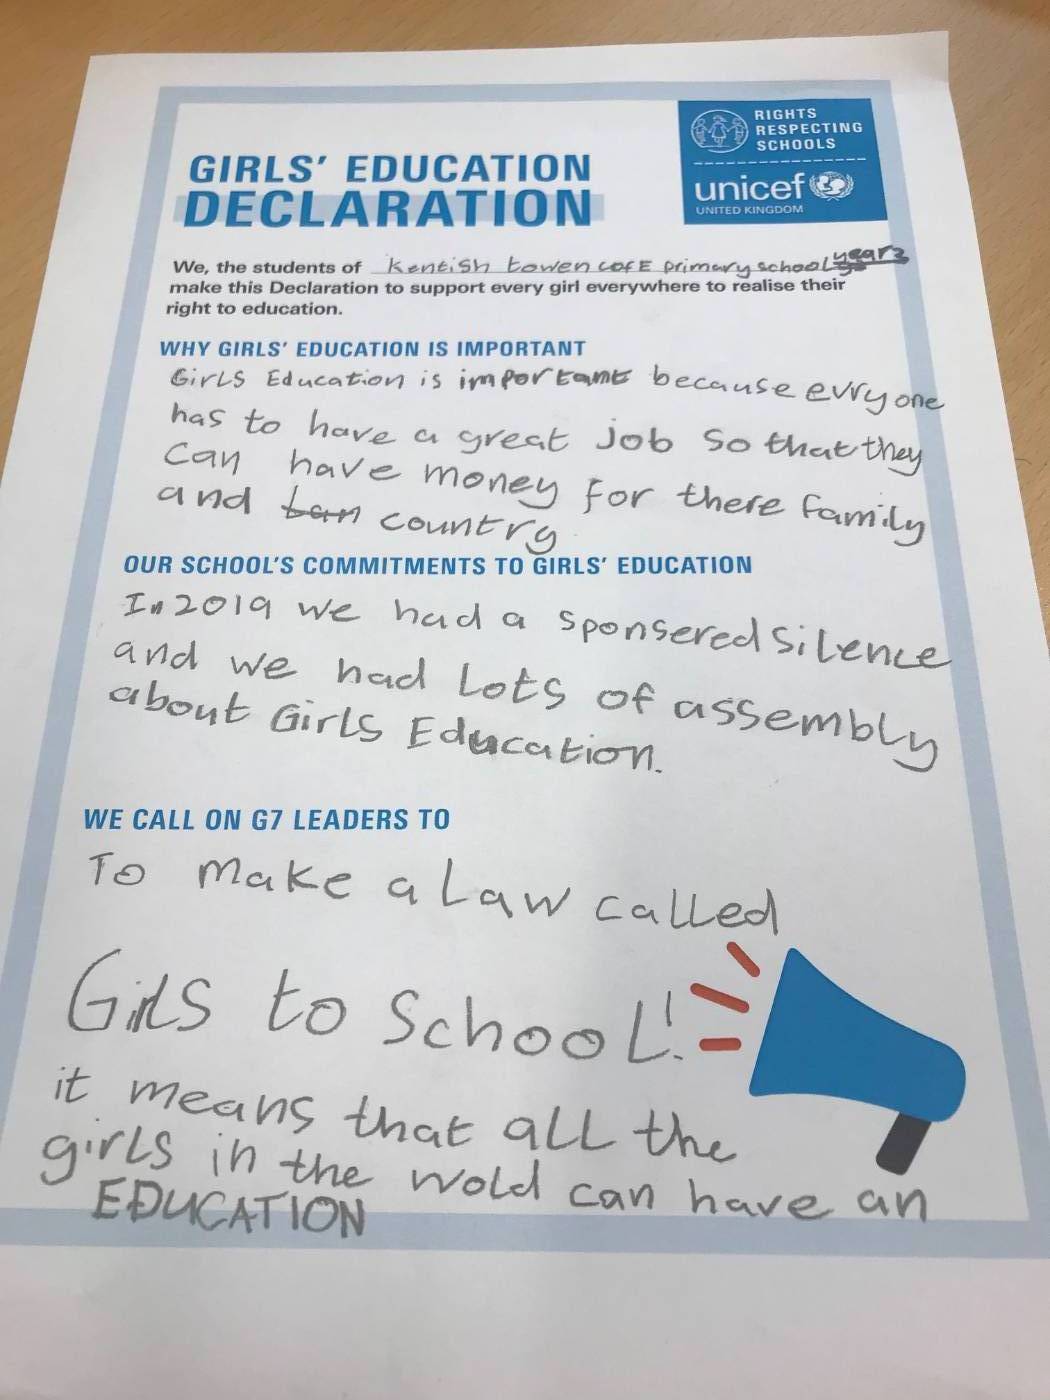 RIGHTS
RESPECTING
SCHOOLS
unicef
UNITED KINGDOM
GIRLS' EDUCATION
DECLARATION
We, the students of Kentish towen cofE primary school year2
make this Declaration to support every girl everywhere to realise their
right to education.
WHY GIRLS' EDUCATION IS IMPORTANT
Girls Education is important because evryone
has to have a great job so that they
can have money for there family
and country
OUR SCHOOL'S COMMITMENTS TO GIRLS' EDUCATION
In 2019 we had a sponsered silence
and we had lots of assembly
about Girls Education.
WE CALL ON G7 LEADERS TO
To make a law called
Girls to School!
it means that all the
girls in the wold can have an
EDUCATION